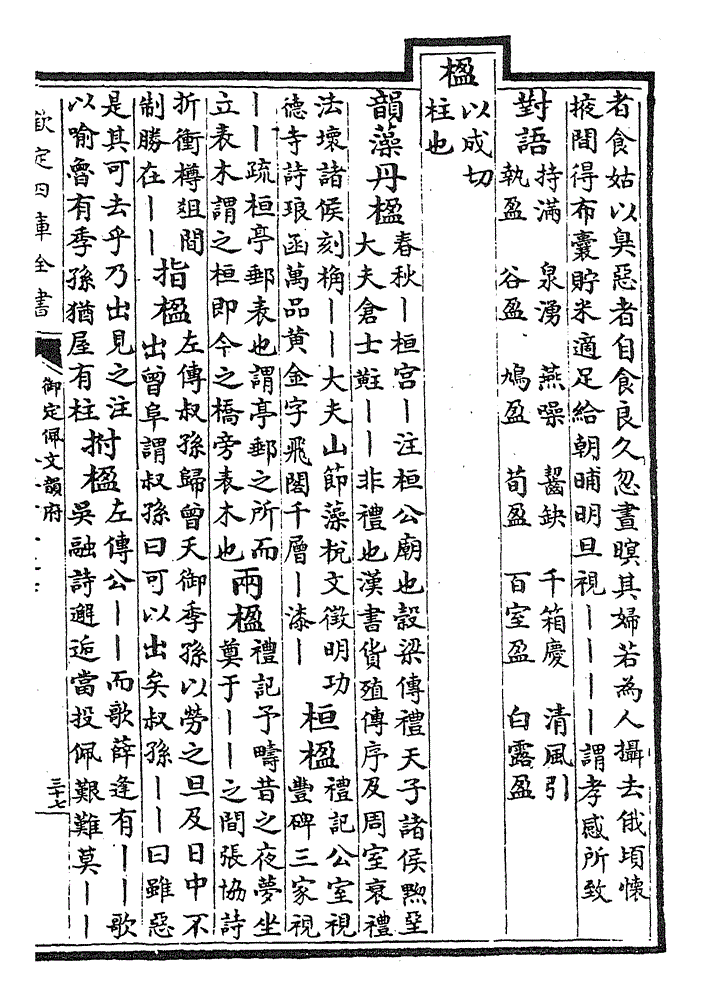 者食姑以臭惡者自食良久忽晝暝其婦若為人攝去俄頃懷
掖間得布囊貯米適足給朝晡明旦視丨丨丨丨謂孝感所致
對語
持滿 泉湧 燕噪 齧缺 千箱慶 清風引
執盈 谷盈 鳩盈 荀盈 百室盈 白露盈
楹
以成切
柱也
韻藻丹楹
春秋丨桓宮丨注桓公廟也穀梁傳禮天子諸侯黝堊
大夫倉士黈丨丨非禮也漢書貨殖傳序及周室衰禮
法壞諸侯刻桷丨丨大夫山節藻梲文徵明功
德寺詩琅函萬品黃金字飛閣千層丨漆丨
桓楹
禮記公室視
豐碑三家視
丨丨疏桓亭郵表也謂亭郵之所而
立表木謂之桓即今之橋旁表木也
兩楹
禮記予疇昔之夜夢坐
奠于丨丨之間張協詩
折衝樽俎間
制勝在丨丨
指楹
左傳叔孫歸曾天御季孫以勞之旦及日中不
出曾阜謂叔孫曰可以出矣叔孫丨丨曰雖惡
是其可去乎乃出見之注
以喻魯有季孫猶屋有柱
拊楹
左傳公丨丨而歌薛逢有丨丨歌
吳融詩邂逅當投佩艱難莫丨丨
欽定四庫全書
御定佩文韻府
三十七